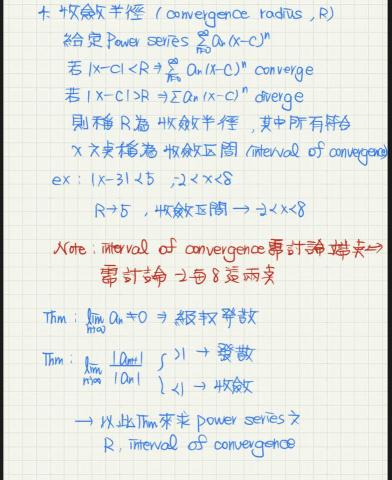 * 收斂半徑 (convergence radius, R)
給定 Power series ∑_{n=0}^∞ an(x-c)^n
若 |x-c| < R ⇒ ∑_{n=0}^∞ an(x-c)^n converge
若 |x-c| > R ⇒ ∑an(x-c)^n diverge
則稱 R 為 收斂半徑, 其中所有符合
x 之點稱為 收斂區間 (interval of convergence)
ex: |x-3| < 5, -2 < x < 8
R→5, 收斂區間 → -2 < x < 8
Note: interval of convergence 需討論端點 ⇔
需討論 -2 與 8 這兩點
Thm: lim_{n→∞} an ≠ 0 ⇒ 級數發散
Thm: lim_{n→∞} |an+1| / |an| { >1 → 發散
<1 → 收斂
→ 以此 Thm 來求 power series 之
R, interval of convergence